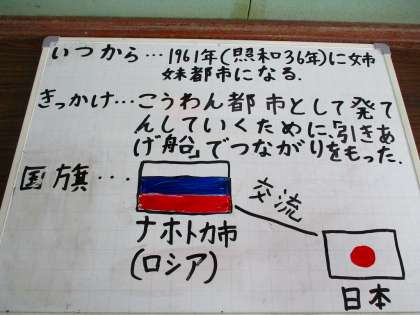 いつから…1961年(昭和36年)に姉
妹都市になる.
きっかけ…こうわん都市として発て
んしていくために、「引きあ
げ船」でつながりをもった.
国旗…
ナホトカ市
(ロシア)
交流
日本